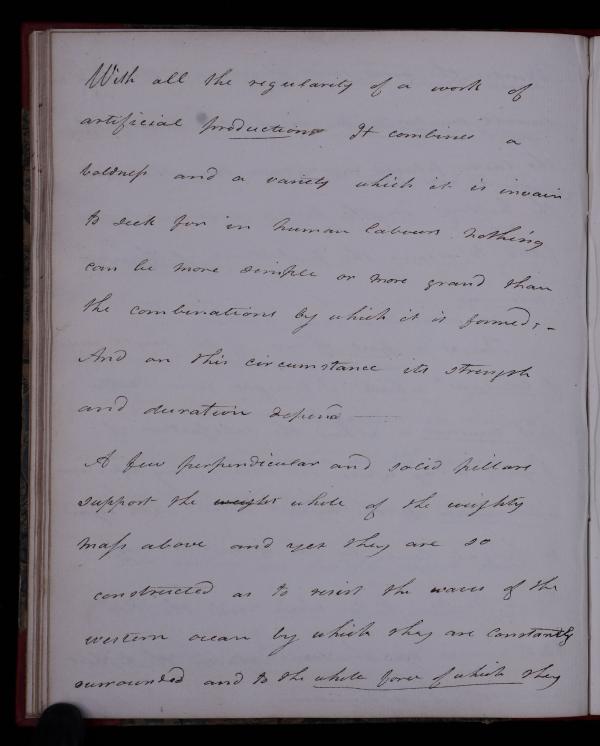 With all the regularity of a work of
artificial productions It combines a
boldness and a variety which it is invain
to seek for in human labours. Nothing
can be more simple or more grand than
the combinations by which it is formed; -
And on this circumstance its strength
and duration depend
A few perpendicular and solid pillars
support the weight whole of the weighty
mass above and yet they are so
constructed as to resist the waves of the
western ocean by which they are constantly
surrounded and to the whole force of which they